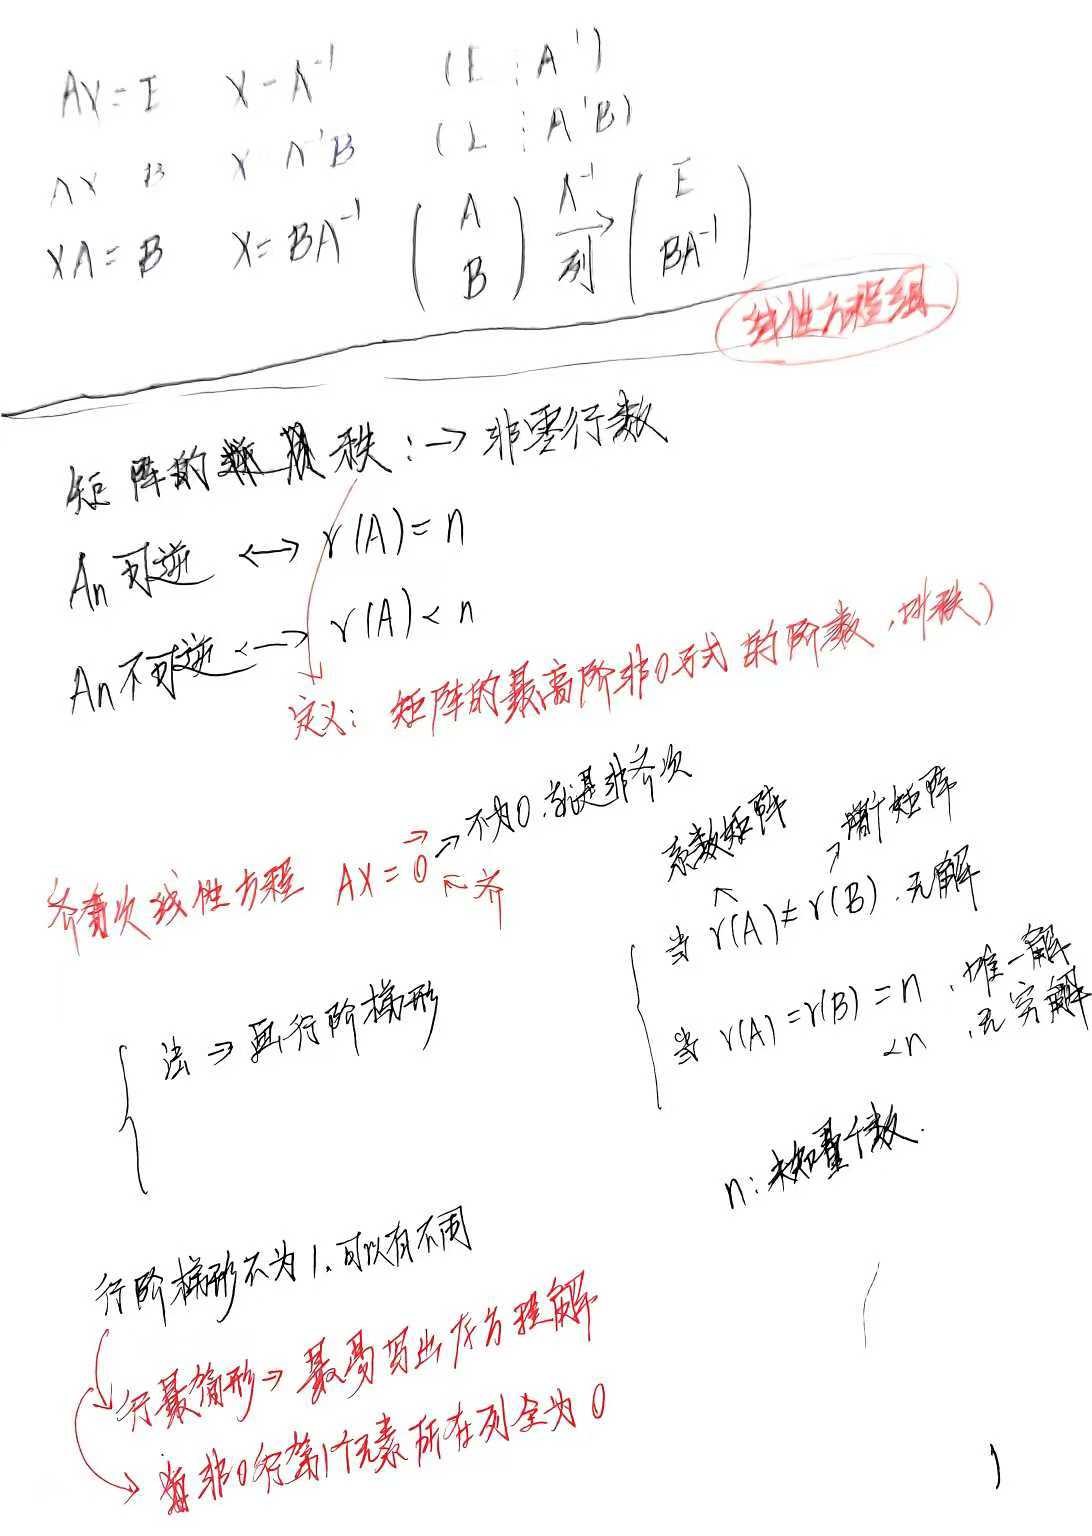 AX = E X = A⁻¹ (E ⋮ A⁻¹)
AX B X A⁻¹B (E ⋮ A⁻¹B)
XA = B X = BA⁻¹ (A B) A⁻¹ → 列 (E BA⁻¹)
线性方程组
矩阵的 秩：→ 非零行数
An可逆 <-> r(A) = n
An不可逆 <-> r(A) < n
定义：矩阵的最高阶非0子式的阶数
齐次线性方程 AX = 0 → 不为0.就是非齐次
← 齐
系数矩阵 增广矩阵
当 r(A) ≠ r(B).无解
当 r(A) = r(B) = n .唯一解
< n .无穷解
n：未知量个数.
法 → 画行阶梯形
行阶梯形不为1.可以有不同
行最简形 → 最易写出方程解
每非0行第1个元素所在列全为0